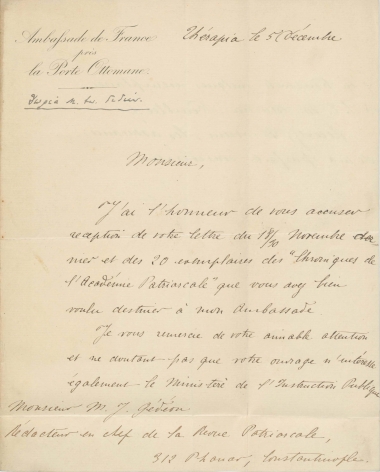 Ambassade de France
près
la Porte Ottomane.
Thérapia le Décembre
Monsieur,
J'ai l'honneur de vous accuser
reception de votre lettre du 18/30 Novembre der-
nier et des 20 exemplaires des "Chroniques de
l'Académie Patriarcale" que vous avez bien
voulu destiner à mon Ambassade
Je vous remercie de votre aimable attention
et ne doutant pas que votre ouvrage n'intéresse
également le Ministère de l'Instruction Publique
Monsieur M. J. Gédéon
Rédacteur en chef de la Revue Patriarcale,
312 Phanar, Constantinople.